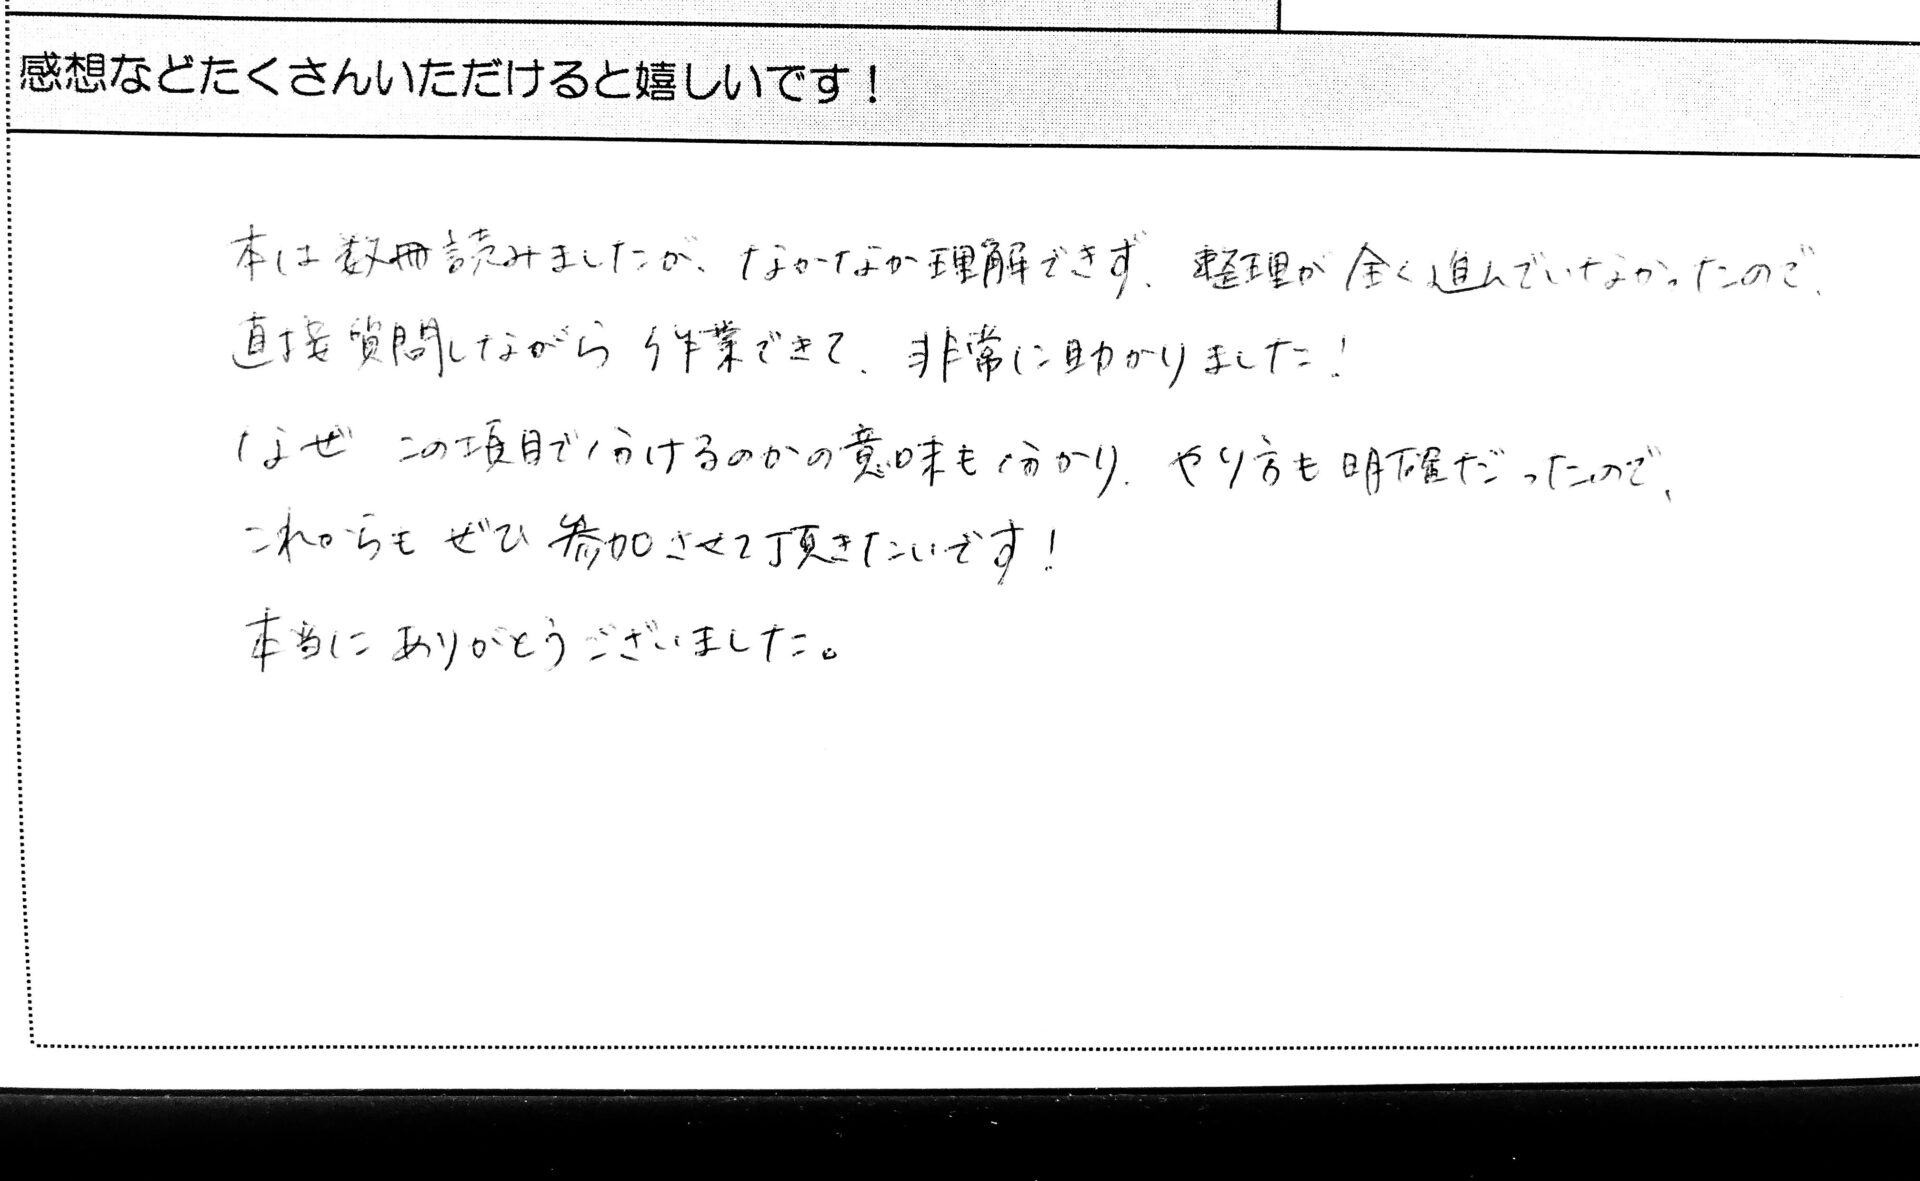 感想などたくさんいただけると嬉しいです！
本は数冊読みましたが、なかなか理解できず、整理が全く進んでいなかったので、
直接質問しながら作業できて、非常に助かりました！
なぜこの項目で分けるのかの意味も分かり、やり方も明確だったので、
これからもぜひ参加させて頂きたいです！
本当にありがとうございました。